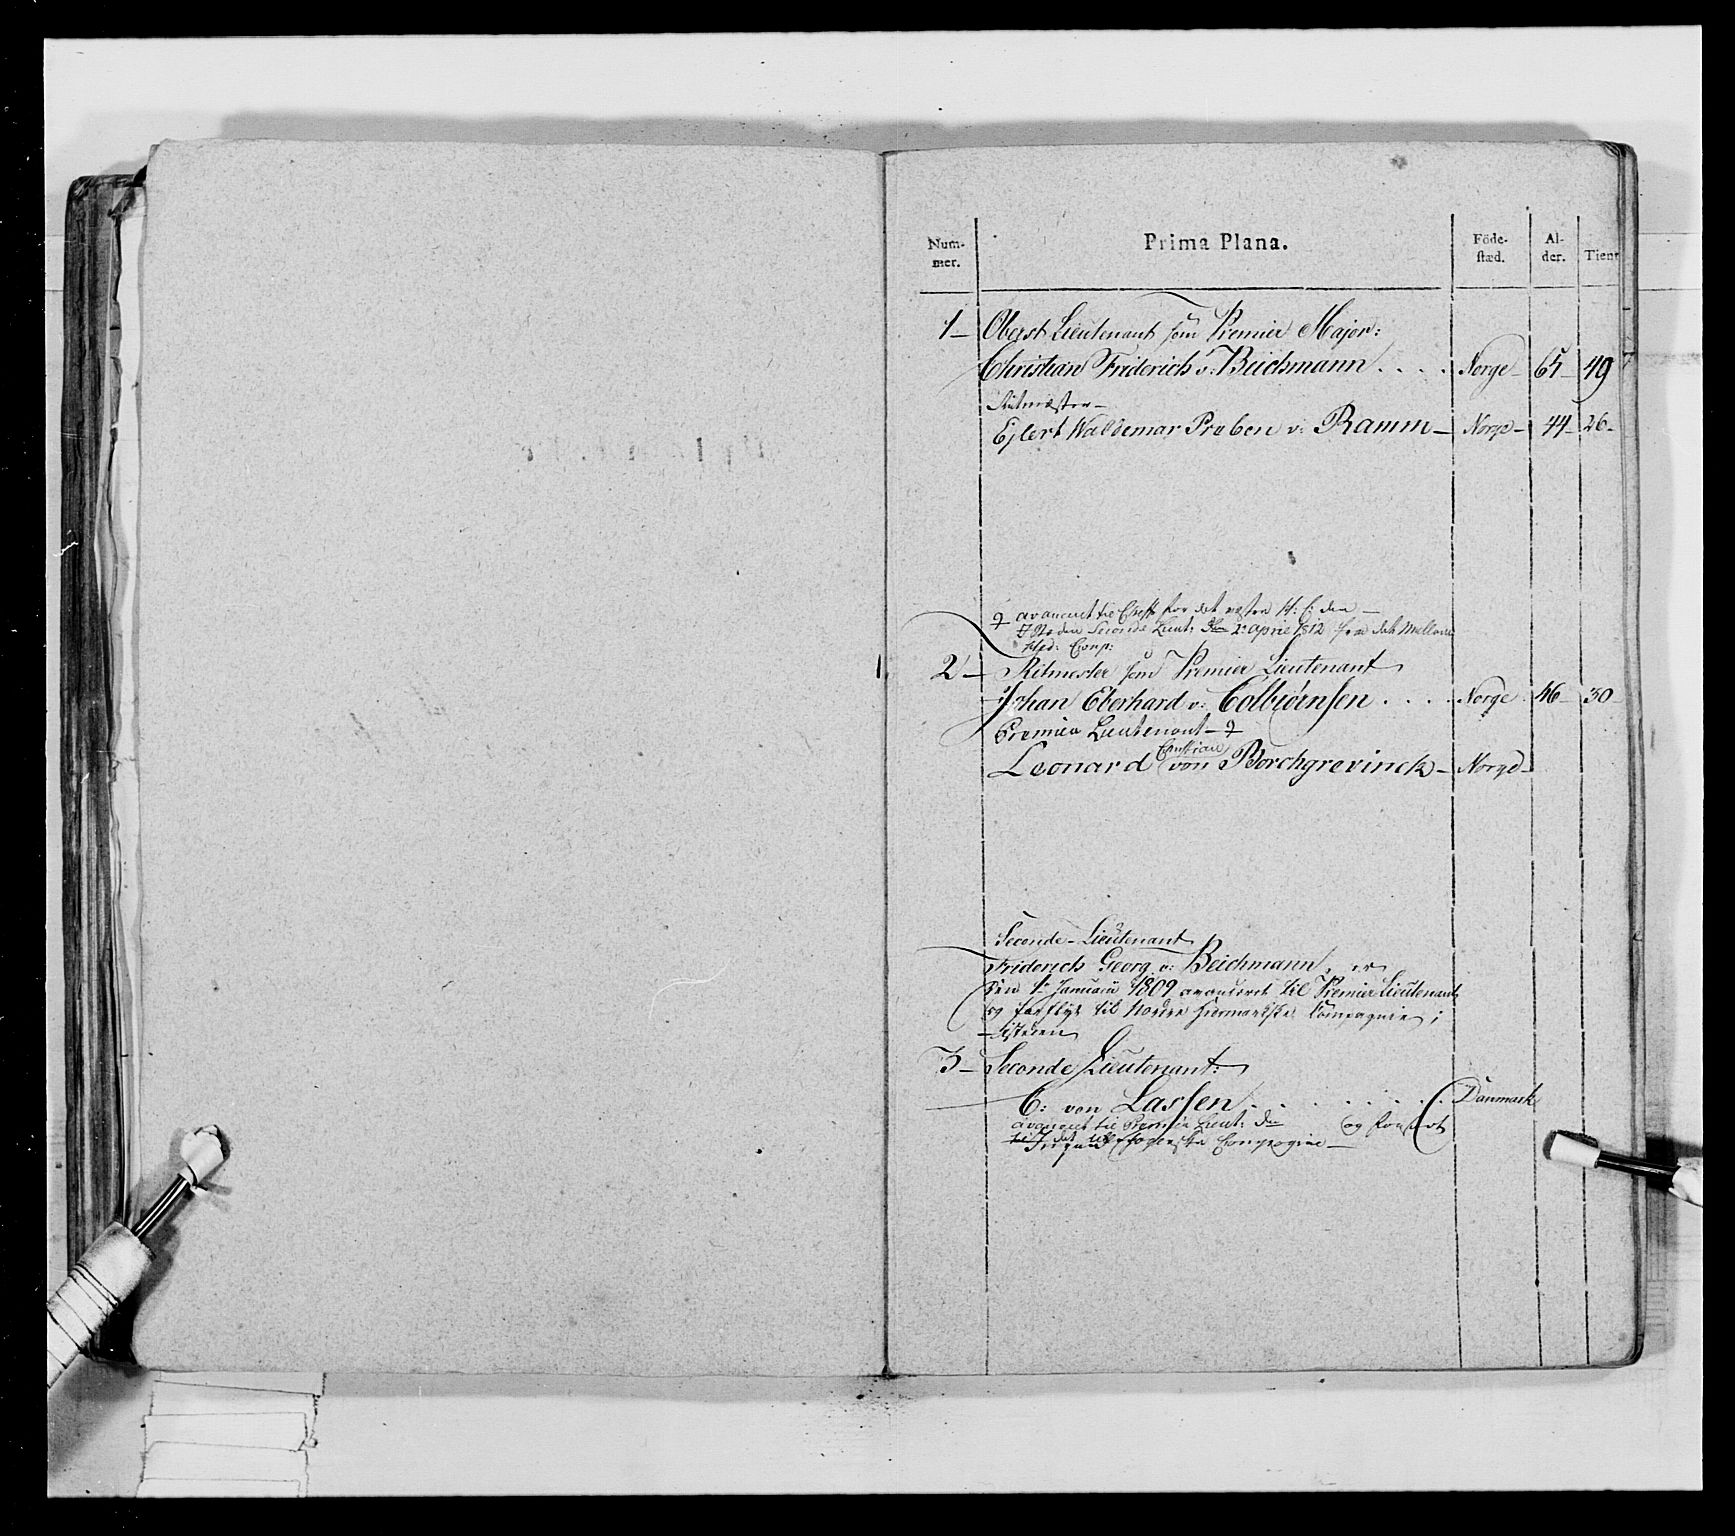 Num-
mer.
Prima Plana.
Föde-
stæd.
Al-
der.
Tient
1 - Oberst Lieutenant som Premier Major:
Christian Friderich v: Beichmann . . . . Norge - 65 - 49
Ritmester -
Ejlert Waldemar Preben v: Ramm - Norge - 44 - 26 -
avanceret til Cheff for det
den Seconde Lieut: 2 April 1812 fra det Mellom
Comp:
2 - Ritmester som Premier Lieutenant
Johan Eberhard v: Colbiørnsen . . . . Norge 46 - 30 -
Premier Lieutenant -
Christian
Leonard von Borchgrevinck - Norge -
Seconde - Lieutenant
Friderich Georg v: Beichmann, er
den 1 Januarii 1809 avanceret til Premier Lieutenant
og forflyt til Nordre Compagnie i
3 - Seconde Lieutenant:
C: von Lassen . . . . . . . Danmark
avanceret til Premier Lieut: den og forsat
til det Compagnie -